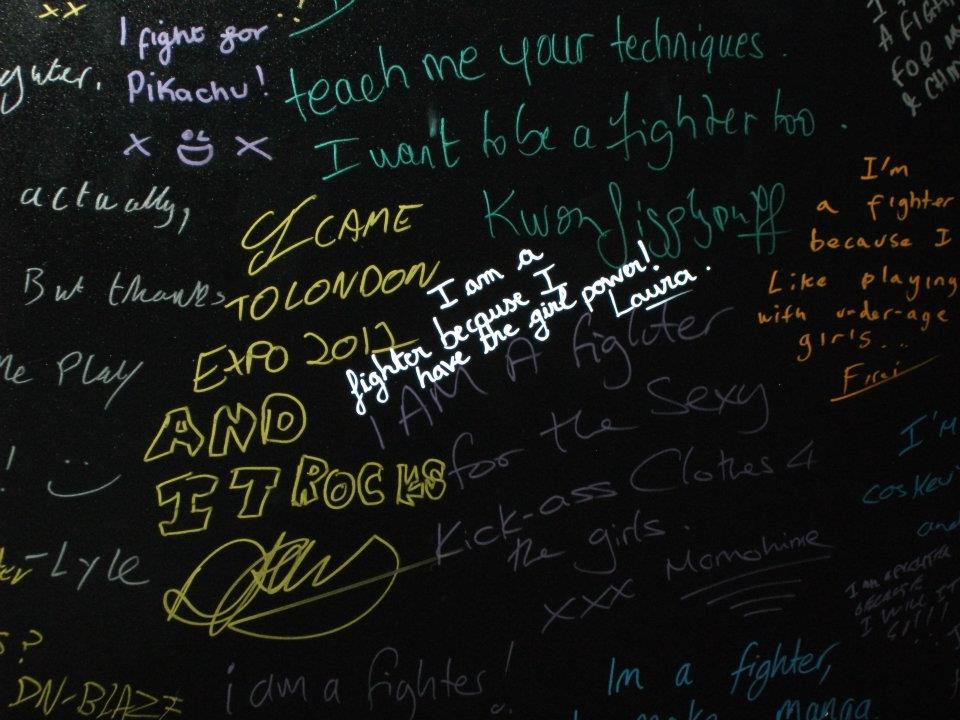 xx
I fight for
Pikachu!
x x
teach me your techniques.
I want to be a fighter too.
actually,
But thanks
Me Play
! :)
-Lyle
I CAME
TO LONDON
EXPO 2012
AND
IT ROCKS
I am a
fighter because I
have the girl power!
Laura.
I AM A fighter
for the Sexy
Kick-ass Clothes 4
the girls.
xxx Momohime
I'm
a fighter
because I
Like playing
with under-age
girls...
A FIGHT
FOR
&
I'm
and
DN-BLAZE
i am a fighter!
Im a fighter,
make manga